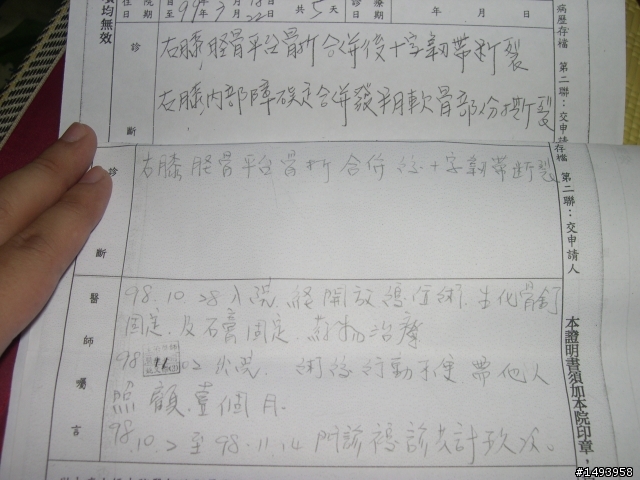 病歷存檔 第二聯:交申請
住院日期 自99年3月18日至 22日 共5天 診療日期 年 月 日
項均無效
診斷
右膝,脛骨平台骨折合併後十字韌帶斷裂
右膝,內部障礙合併發半月軟骨部份撕裂
存檔 第二聯:交申請人
診斷
右膝脛骨平台骨折合併後十字韌帶斷裂
醫師囑言
98.10.28入院.經開放復位術.生化骨釘
固定.及石膏固定.藥物治療
98 11 02出院. 術後行動不便需他人
照顧.壹個月.
98.10.2至98.11.14門診複診共計玖次。
本證明書須加本院印章,
#1493958